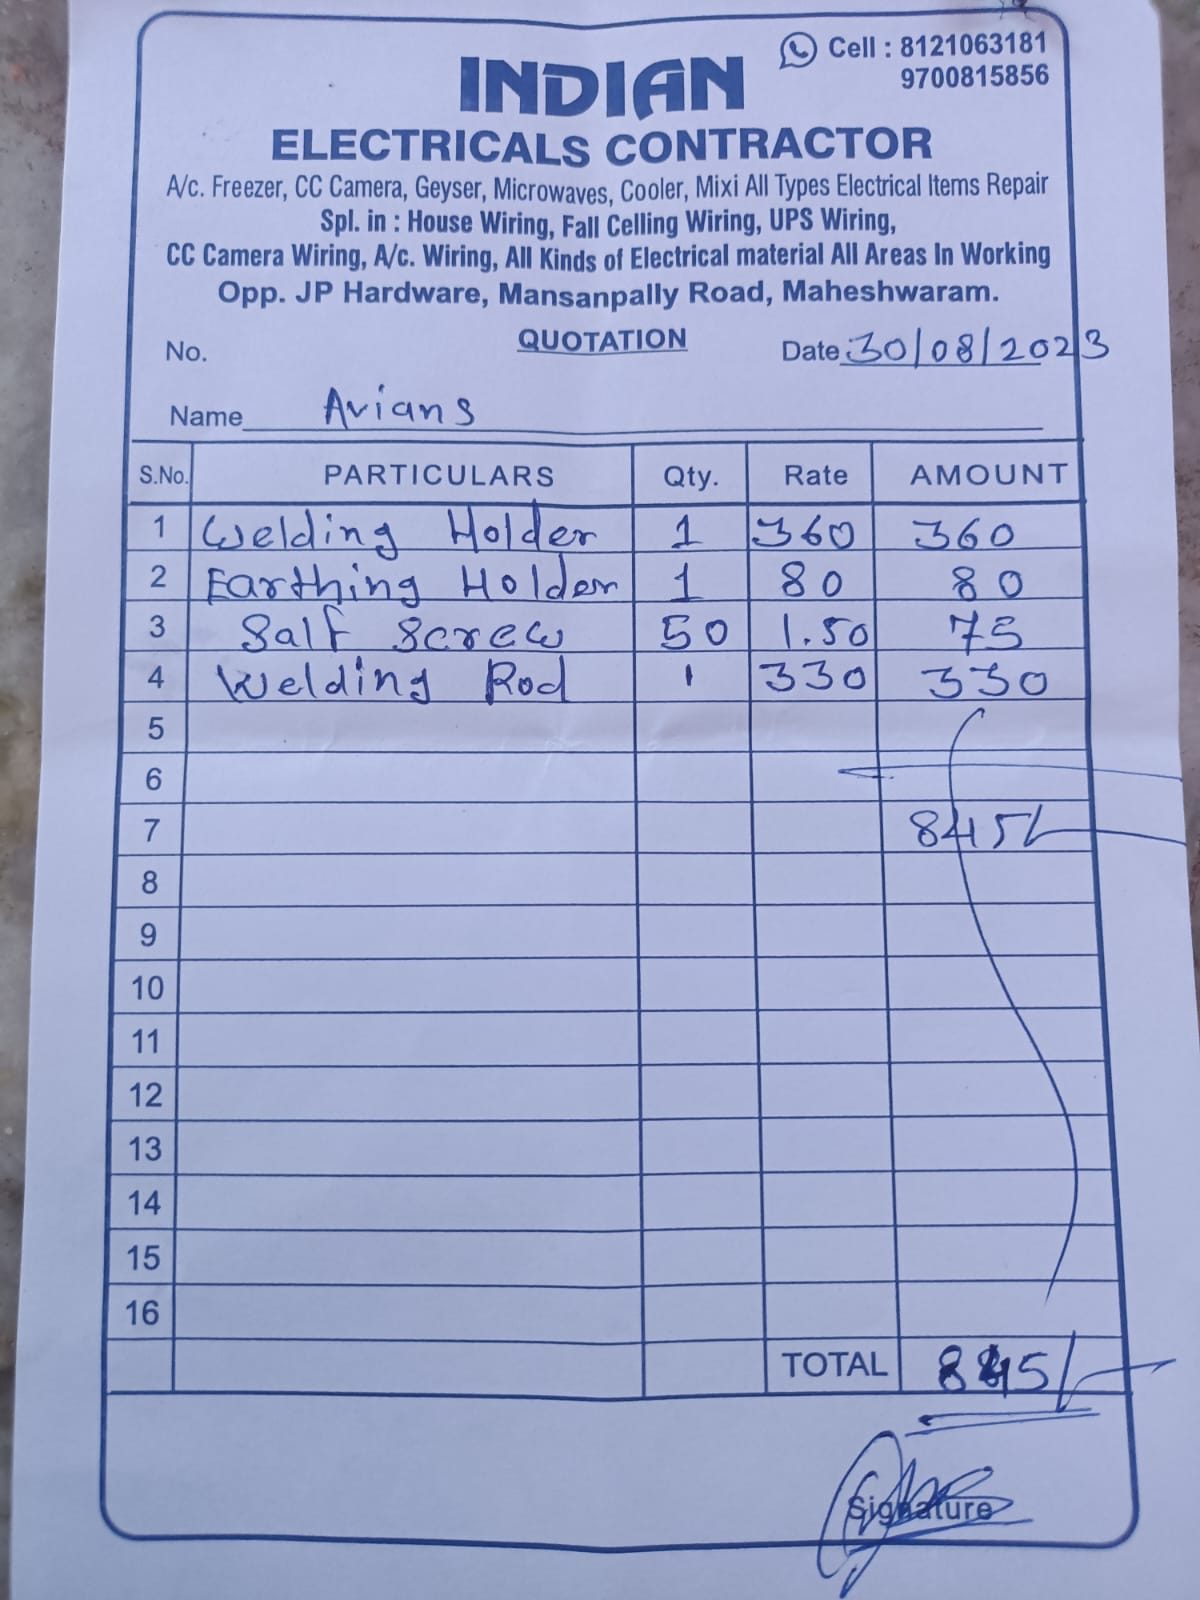 Cell : 8121063181
9700815856
INDIAN
ELECTRICALS CONTRACTOR
A/c. Freezer, CC Camera, Geyser, Microwaves, Cooler, Mixi All Types Electrical Items Repair
Spl. in : House Wiring, Fall Celling Wiring, UPS Wiring,
CC Camera Wiring, A/c. Wiring, All Kinds of Electrical material All Areas In Working
Opp. JP Hardware, Mansanpally Road, Maheshwaram.
No. QUOTATION Date 30/08/2023
Name Avians
S.No. PARTICULARS Qty. Rate AMOUNT
1 Welding Holder 1 360 360
2 Earthing Holder 1 80 80
3 Salf Screw 50 1.50 75
4 Welding Rod 1 330 330
5
6
7 845/-
8
9
10
11
12
13
14
15
16
TOTAL 845/-
Signature